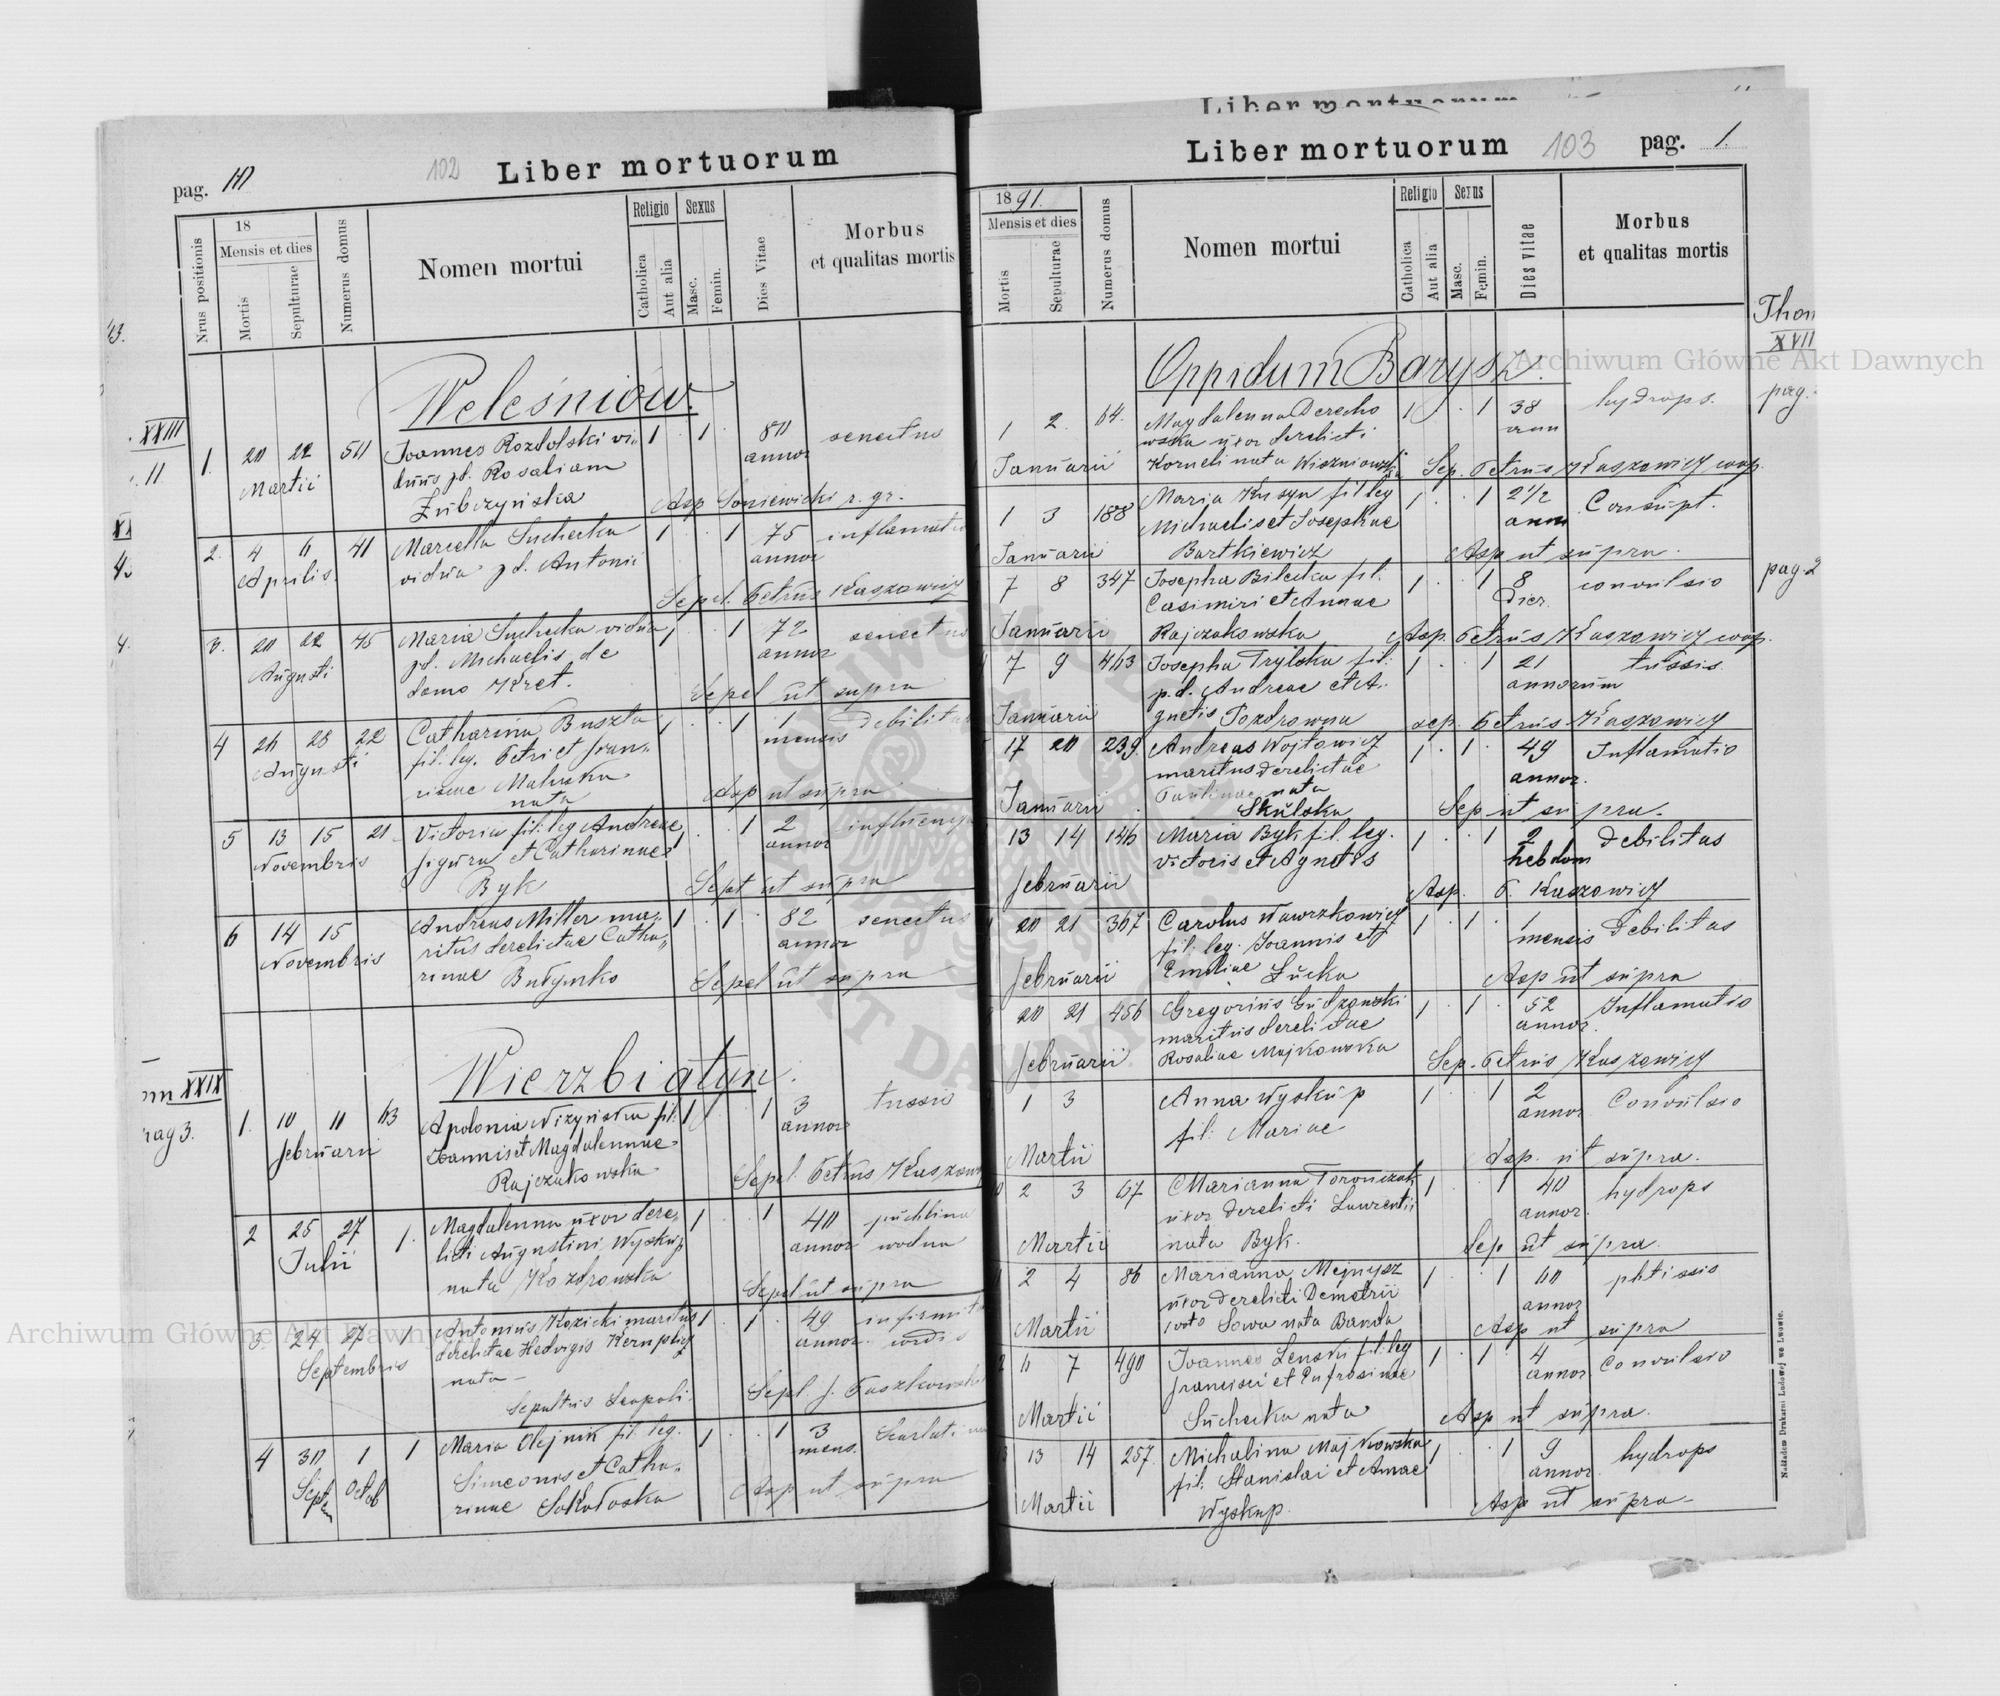 Liber mortuorum
pag.
102
Liber mortuorum
Nrus positionis
18
Mensis et dies
Mortis
Sepulturae
Numerus domus
Nomen mortui
Religio
Catholica
Aut alia
Sexus
Masc.
Femin.
Dies Vitae
Morbus
et qualitas mortis
Weleśniów.
1. 20 22 50 Joannes Rozdolski vi- 1 1 80 senectus
Martii duus pd. Rosaliam annor
Zubczyńska Asp Soniewicki r. gr.
2. 4 6 41 Marcella Suchecka 1 1 75
Aprilis vidua pd. Antonii annor
Sepel. Petrus Kaszowicz
3. 20 22 75 Maria Suchecka vidua 1 1 72 senectus
Augusti pd. Michaelis de annor
domo Kret. Sepel ut supra
4 26 28 22 Catharina Buszta 1 1 1
Augusti fil. leg. Petri et Fran- mensis
nata Asp ut supra
5 13 15 21 Victoria fil. leg Andreae 1 1 2
Novembris Figura et Catharinae annor
Byk Sepel ut supra
6 14 15 Andreas Miller ma- 1 1 82 senectus
Novembris ritus derelictae Catha- annor
rinae Sepel ut supra
Wierzbiatyn.
1. 10 11 63 Apolonia fil. 1 1 3 tussis
Februarii Joannis et Magdalennae annor
Rajczakowska Sepel. Petrus Kaszow
2 25 27 1. Magdalenna uxor dere- 1 1 40 puchlina
Julii licti Augustini Wyskup annor wodna
nata Kozdrowska Sepel ut supra
3. 24 27 1 Antonius Kozicki maritus 1 1 49
Septembris derelictae Hedvigis annor cordis
nata -
Sepultus Leopoli.
4 30 1 1 Maria Olejnik fil. leg. 1 1 3
Sept Octob Simeonis et Catha- mens.
rinae Sokołoska Asp ut supra
Liber mortuorum
103
pag. 1.
1891.
Mensis et dies
Mortis
Sepulturae
Numerus domus
Nomen mortui
Religio
Catholica
Aut alia
Sexus
Masc.
Femin.
Dies vitae
Morbus
et qualitas mortis
Oppidum Barysz.
1 2. 64. Magdalenna Derecho 1 1 38 hydrops.
wska uxor derelicti ann
Januarii Korneli nata Sep. Petrus Kaszowicz coop.
1 3 188 Maria Kusyn fil leg 1 1 2 1/2 Consupt.
Michaelis et Josephae annor
Januarii Bartkiewicz Asp ut supra.
7 8 347 Josepha Bilecka fil. 1 1 8 convulsio
Casimiri et Annae dier.
Januarii Rajczakowska Asp. Petrus Kaszowicz coop.
7 9 463 Josepha Trylska fil. 1 1 21 tussis
p.d. Andreae et A- annorum
Januarii gnetis Pozdrowna sep. Petrus Kaszowicz
17 20 239. Andreas Wojtowicz 1 1 49 Inflamatio
maritus derelictae annor.
Paulinae nata
Januarii Skulska Sep ut supra.
13 14 146 Maria Byk fil. leg. 1 1 2 Debilitas
Victoris et Agnetis hebdom
Februarii Asp. P. Kaszowicz
20 21 367 Carolus Wawrzkowicz 1 1 1 Debilitas
fil. leg. Joannis et mensis
Februarii Emiliae Łucka Asp ut supra
20 21 456 Gregorius Gudzowski 1 1 52 Inflamatio
maritus derelictae annor.
Februarii Rosaliae Majkowska Sep. Petrus Kaszowicz
1 3 Anna Wyskup 1 1 2 Convulsio
fil. Mariae annor
Martii Asp. ut supra.
2 3 67 Marianna Torończak 1 1 40 hydrops
uxor derelicti Laurentii annor.
Martii nata Byk. Sep ut supra.
2 4 86 Marianna 1 1 60 phtissis
uxor derelicti Demetrii annor
Martii voto Sowa nata Banda Asp ut supra
6 7 490 Joannes fil. leg 1 1 4 Convulsio
Francisci et Eufrosinae annor
Martii Suchecka nata Asp ut supra.
13 14 257. Michalina Majkowska 1 1 9 hydrops
fil. Stanislai et Annae annor.
Martii Wyskup. Asp ut supra-
Nakładem Drukarni Ludowej we Lwowie.
XXIII
11
XXIX
pag 3.
XVII
pag.
pag. 2
Archiwum Główne Akt Dawnych
Archiwum Główne Akt Dawnych